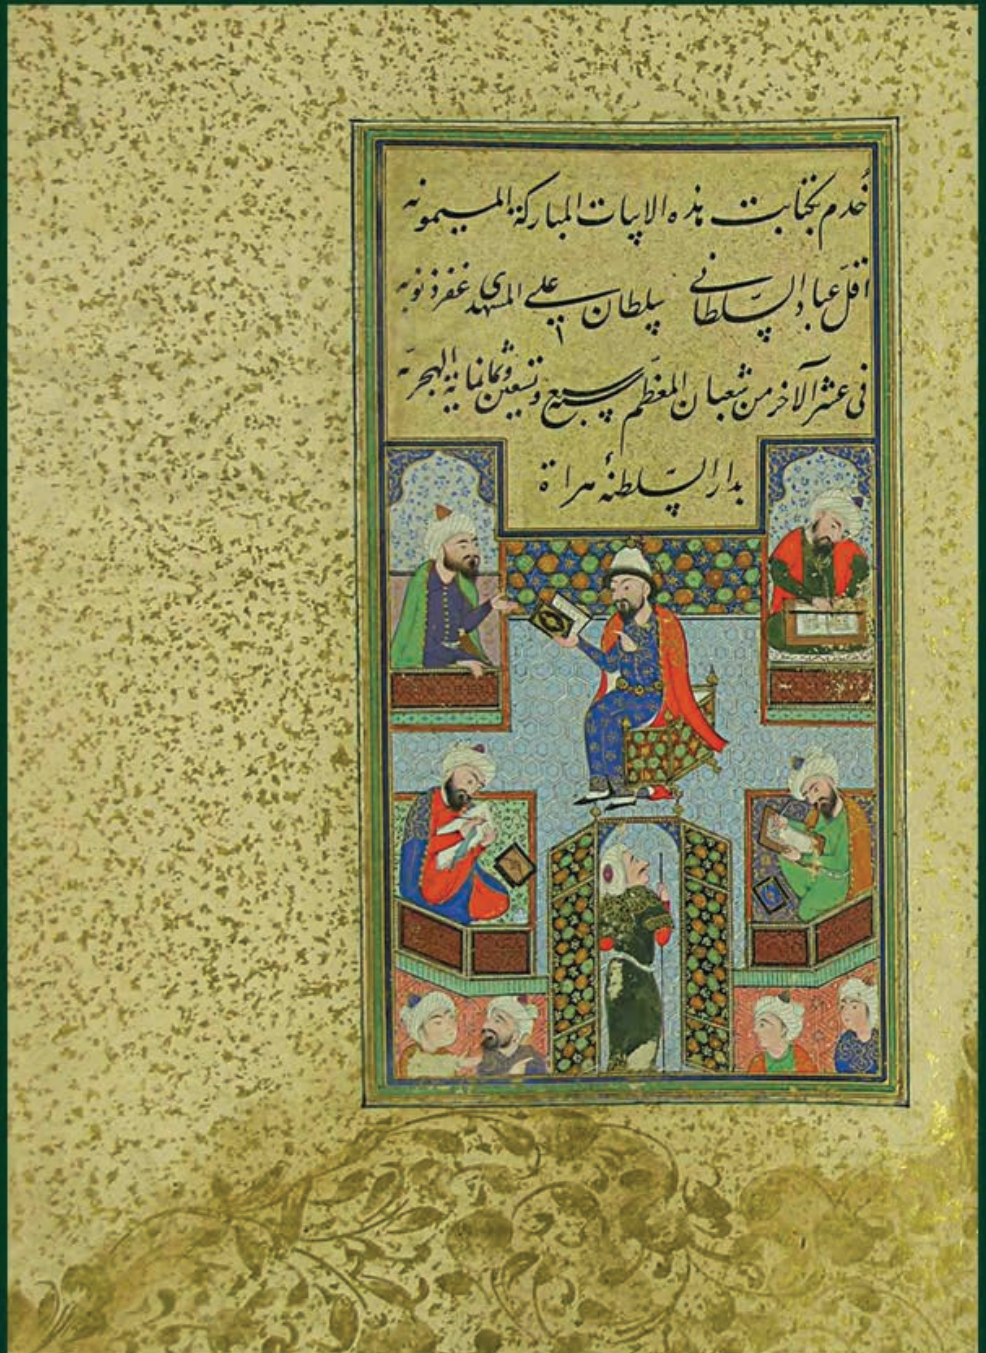 خُدم بکتابت هذه الابیات المبارکة المیمونه
اقلّ عباد السّلطانی سلطان علی المشهدی غفر ذنوبه
فی عشر الآخر من شعبان المعظّم سبع و تسعین وثمانمایة الهجریّه
بدار السّلطنهٔ هراة